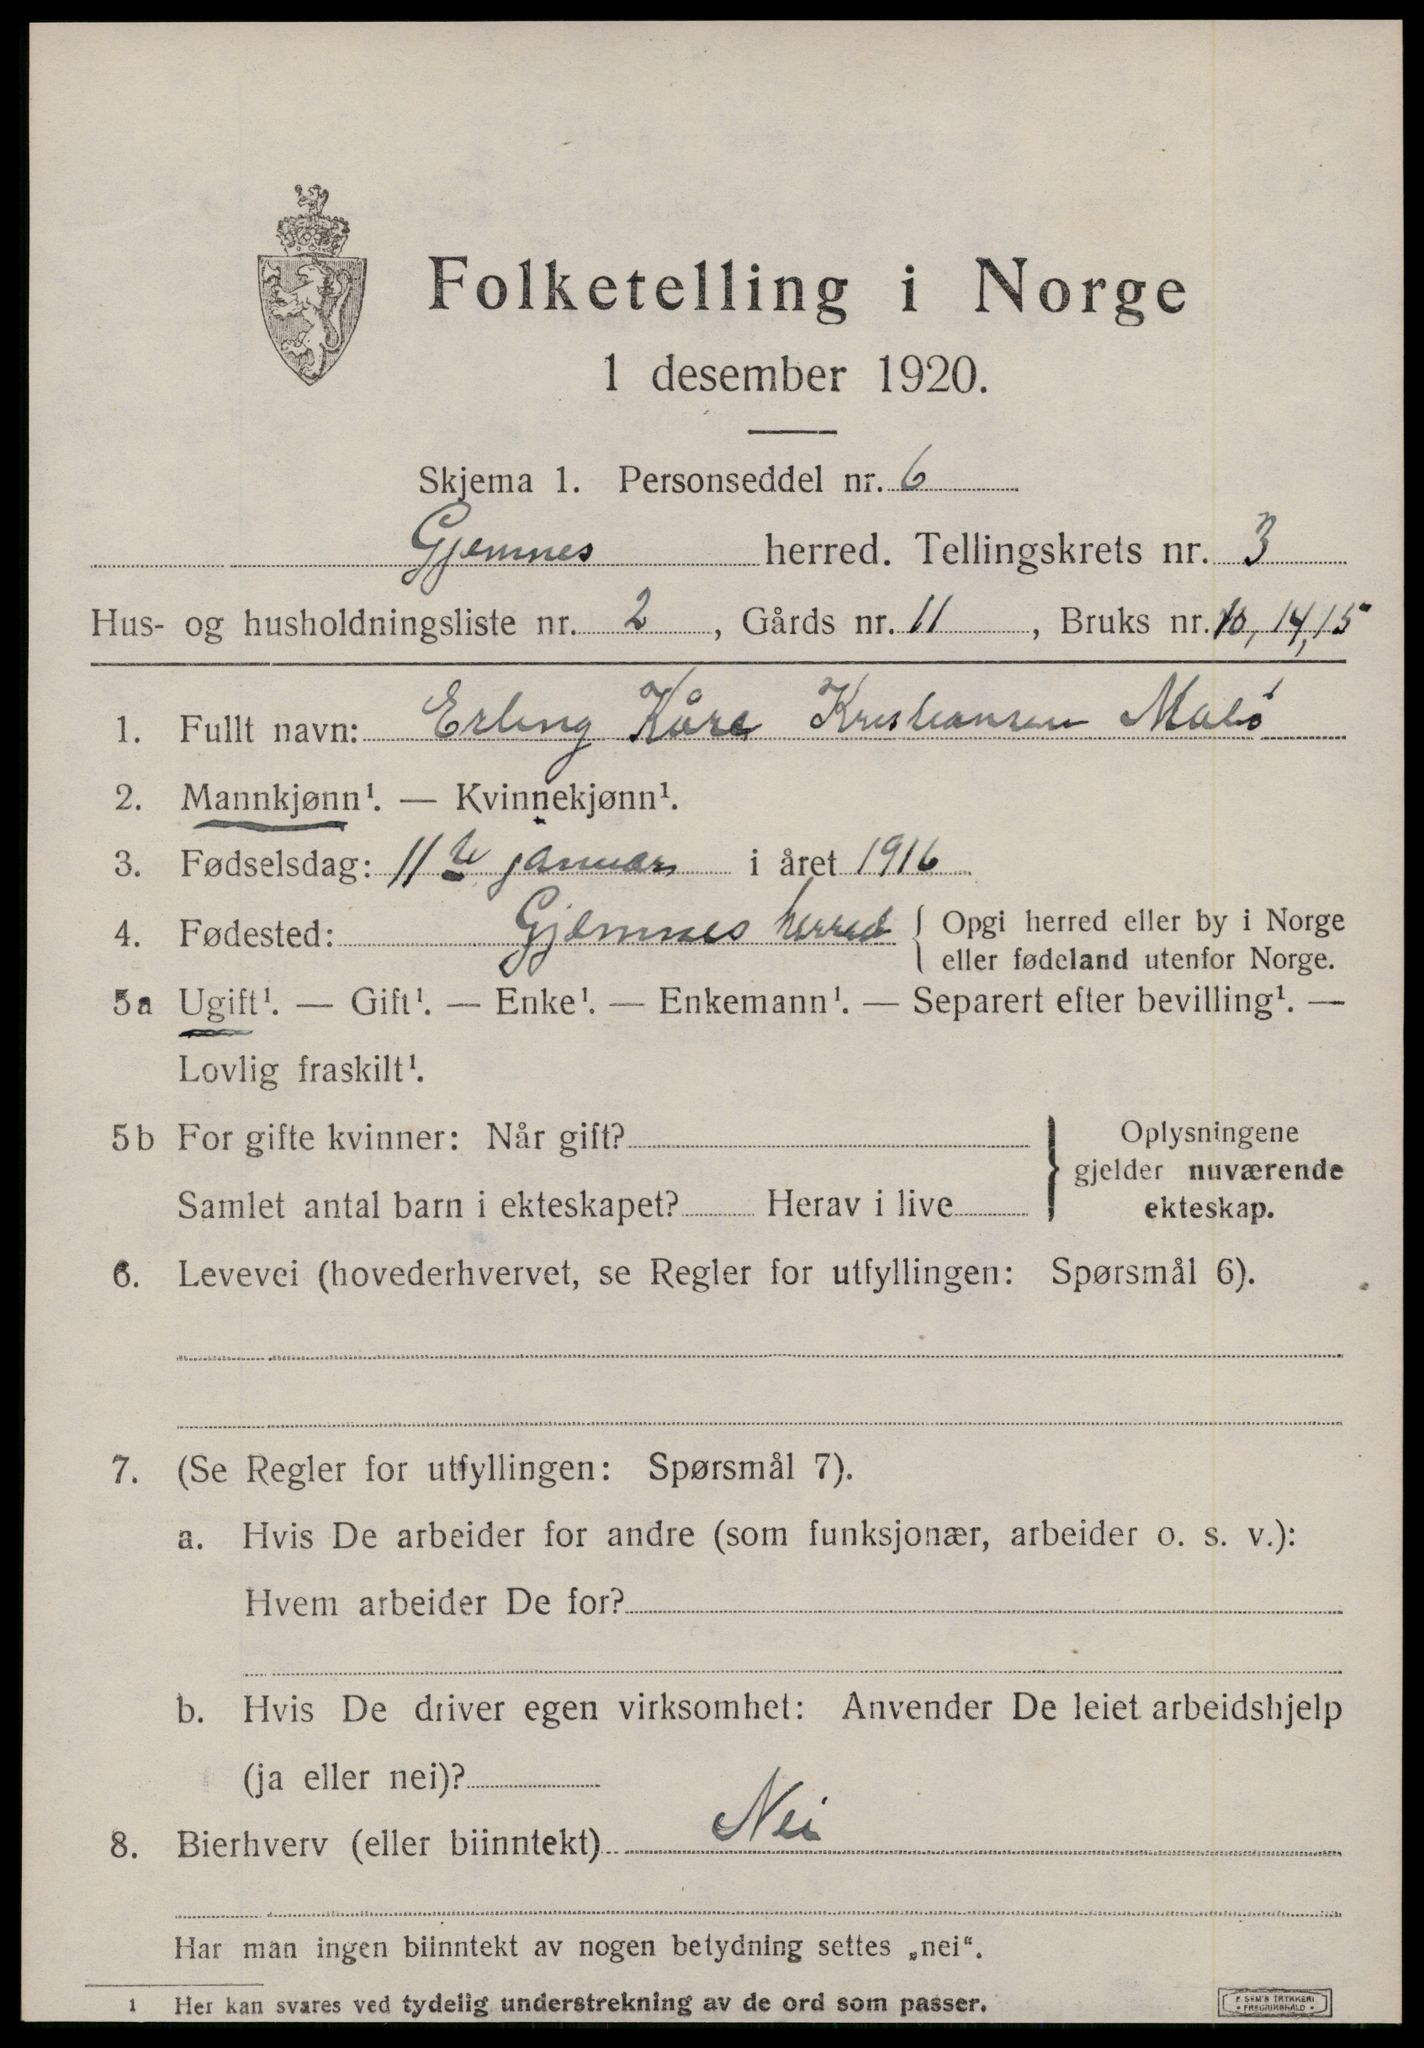 Folketelling i Norge
1 desember 1920.
Skjema 1. Personseddel nr. 6
Gjemnes herred. Tellingskrets nr. 3
Hus- og husholdningsliste nr. 2, Gårds nr. 11, Bruks nr. 10, 14, 15
1. Fullt navn: Erling Kåre Kristiansen Malø
2. Mannkjønn¹. — Kvinnekjønn¹.
3. Fødselsdag: 11te januar i året 1916
4. Fødested: Gjemnes herred { Opgi herred eller by i Norge
eller fødeland utenfor Norge.
5a Ugift¹. — Gift¹. — Enke¹. — Enkemann¹. — Separert efter bevilling¹. —
Lovlig fraskilt¹.
5b For gifte kvinner: Når gift?
Samlet antal barn i ekteskapet? Herav i live
} Oplysningene
gjelder nuværende
ekteskap.
6. Levevei (hovederhvervet, se Regler for utfyllingen: Spørsmål 6).
7. (Se Regler for utfyllingen: Spørsmål 7).
a. Hvis De arbeider for andre (som funksjonær, arbeider o. s. v.):
Hvem arbeider De for?
b. Hvis De driver egen virksomhet: Anvender De leiet arbeidshjelp
(ja eller nei)?
8. Bierhverv (eller biinntekt) Nei
Har man ingen biinntekt av nogen betydning settes „nei“.
1 Her kan svares ved tydelig understrekning av de ord som passer.
F. SEM'S TRYKKERI
• FREDRIKSHALD •